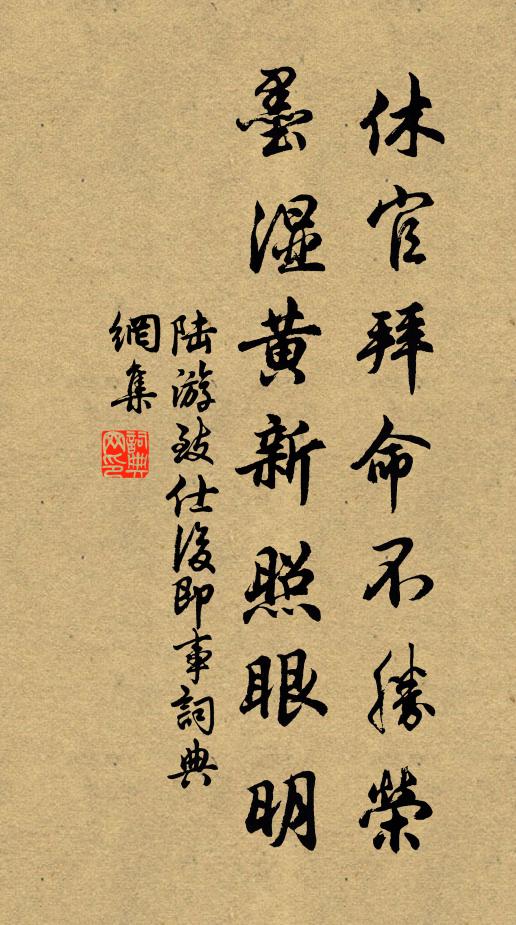 休官拜命不勝榮
墨濕黄新照眼明
陆游致仕後即事詞典
網集
詞典網印